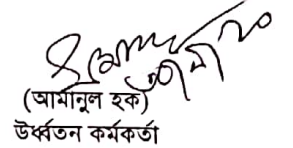 (আমানুল হক)
উর্ধ্বতন কর্মকর্তা